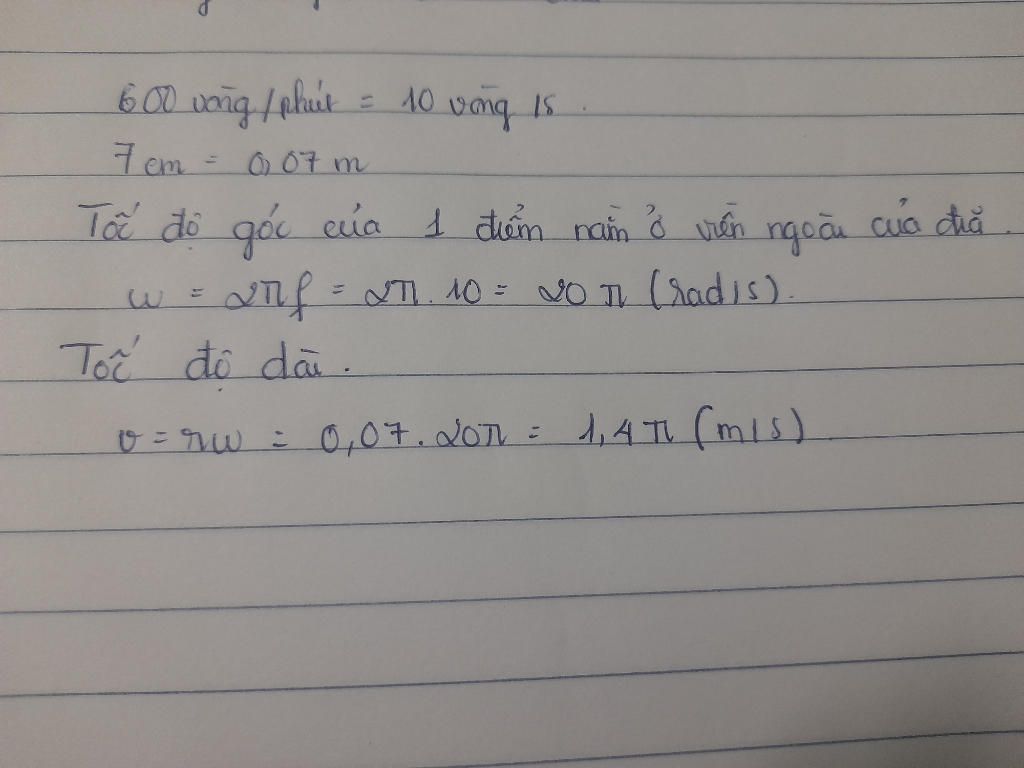 600 vòng/phút = 10 vòng/s.
7cm = 0,07 m
Tốc độ góc của 1 điểm nằm ở viền ngoài của đĩa.
ω = 2πf = 2π.10 = 20π (rad/s).
Tốc độ dài.
v = rω = 0,07.20π = 1,4π (m/s)